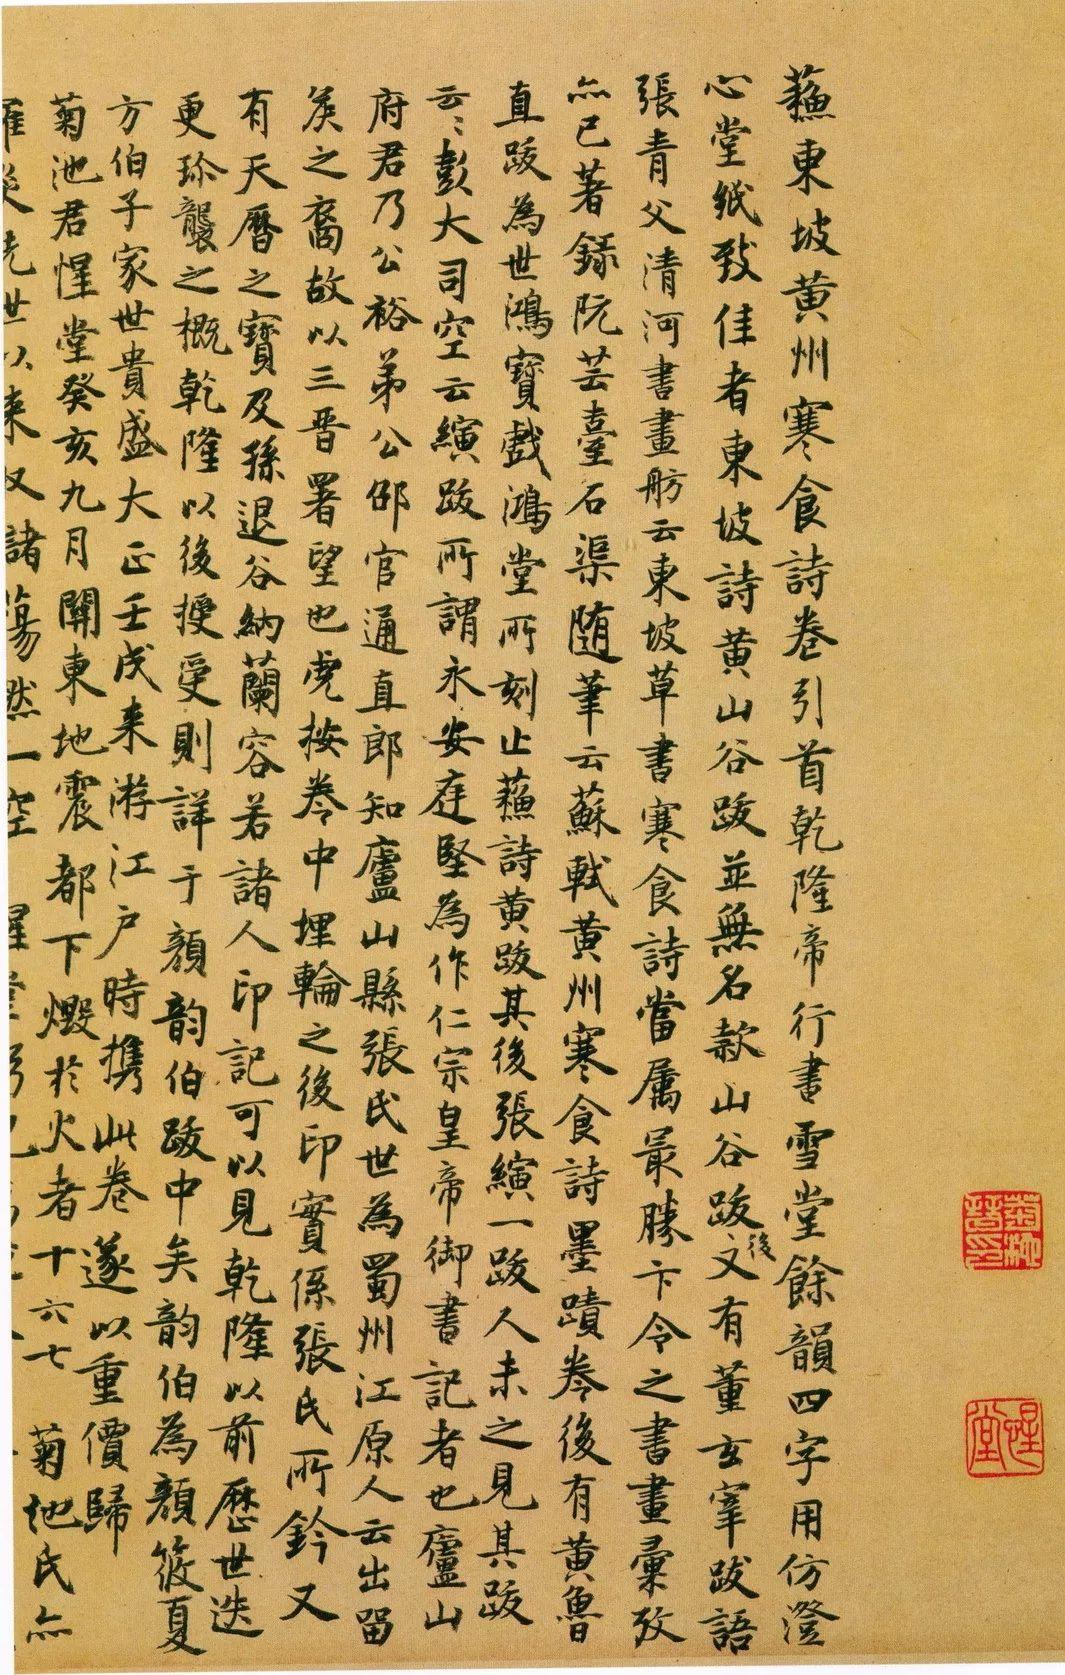 蘓東坡黄州寒食詩卷引首乾隆帝行書雪堂餘韻四字用仿澄
心堂紙致佳者東坡詩黄山谷跋並無名款山谷跋後文有董玄宰跋語
張青父清河書畫舫云東坡草書寒食詩當属最勝卞令之書畫彙攷
亦已著録阮芸臺石渠随筆云蘇軾黄州寒食詩墨蹟卷後有黄魯
直跋為世鴻寶戲鴻堂所刻止蘓詩黄跋其後張縯一跋人未之見其跋
云〻彭大司空云縯跋所謂永安庭堅為作仁宗皇帝御書記者也廬山
府君乃公裕弟公邵官通直郎知廬山縣張氏世為蜀州江原人云出留
矦之裔故以三晋署望也虎按卷中埋輪之後印實係張氏所鈐又
有天曆之寶及孫退谷納蘭容若諸人印記可以見乾隆以前歴世迭
更珎襲之概乾隆以後授受則詳于顔韵伯跋中矣韵伯為顔筱夏
方伯子家世貴盛大正壬戌来游江户時携此卷遂以重價歸
菊池君惺堂癸亥九月關東地震都下燬於火者十六七菊池氏亦
罹災先世以来収諸蕩然一空惺堂
菊池晋印
惺堂